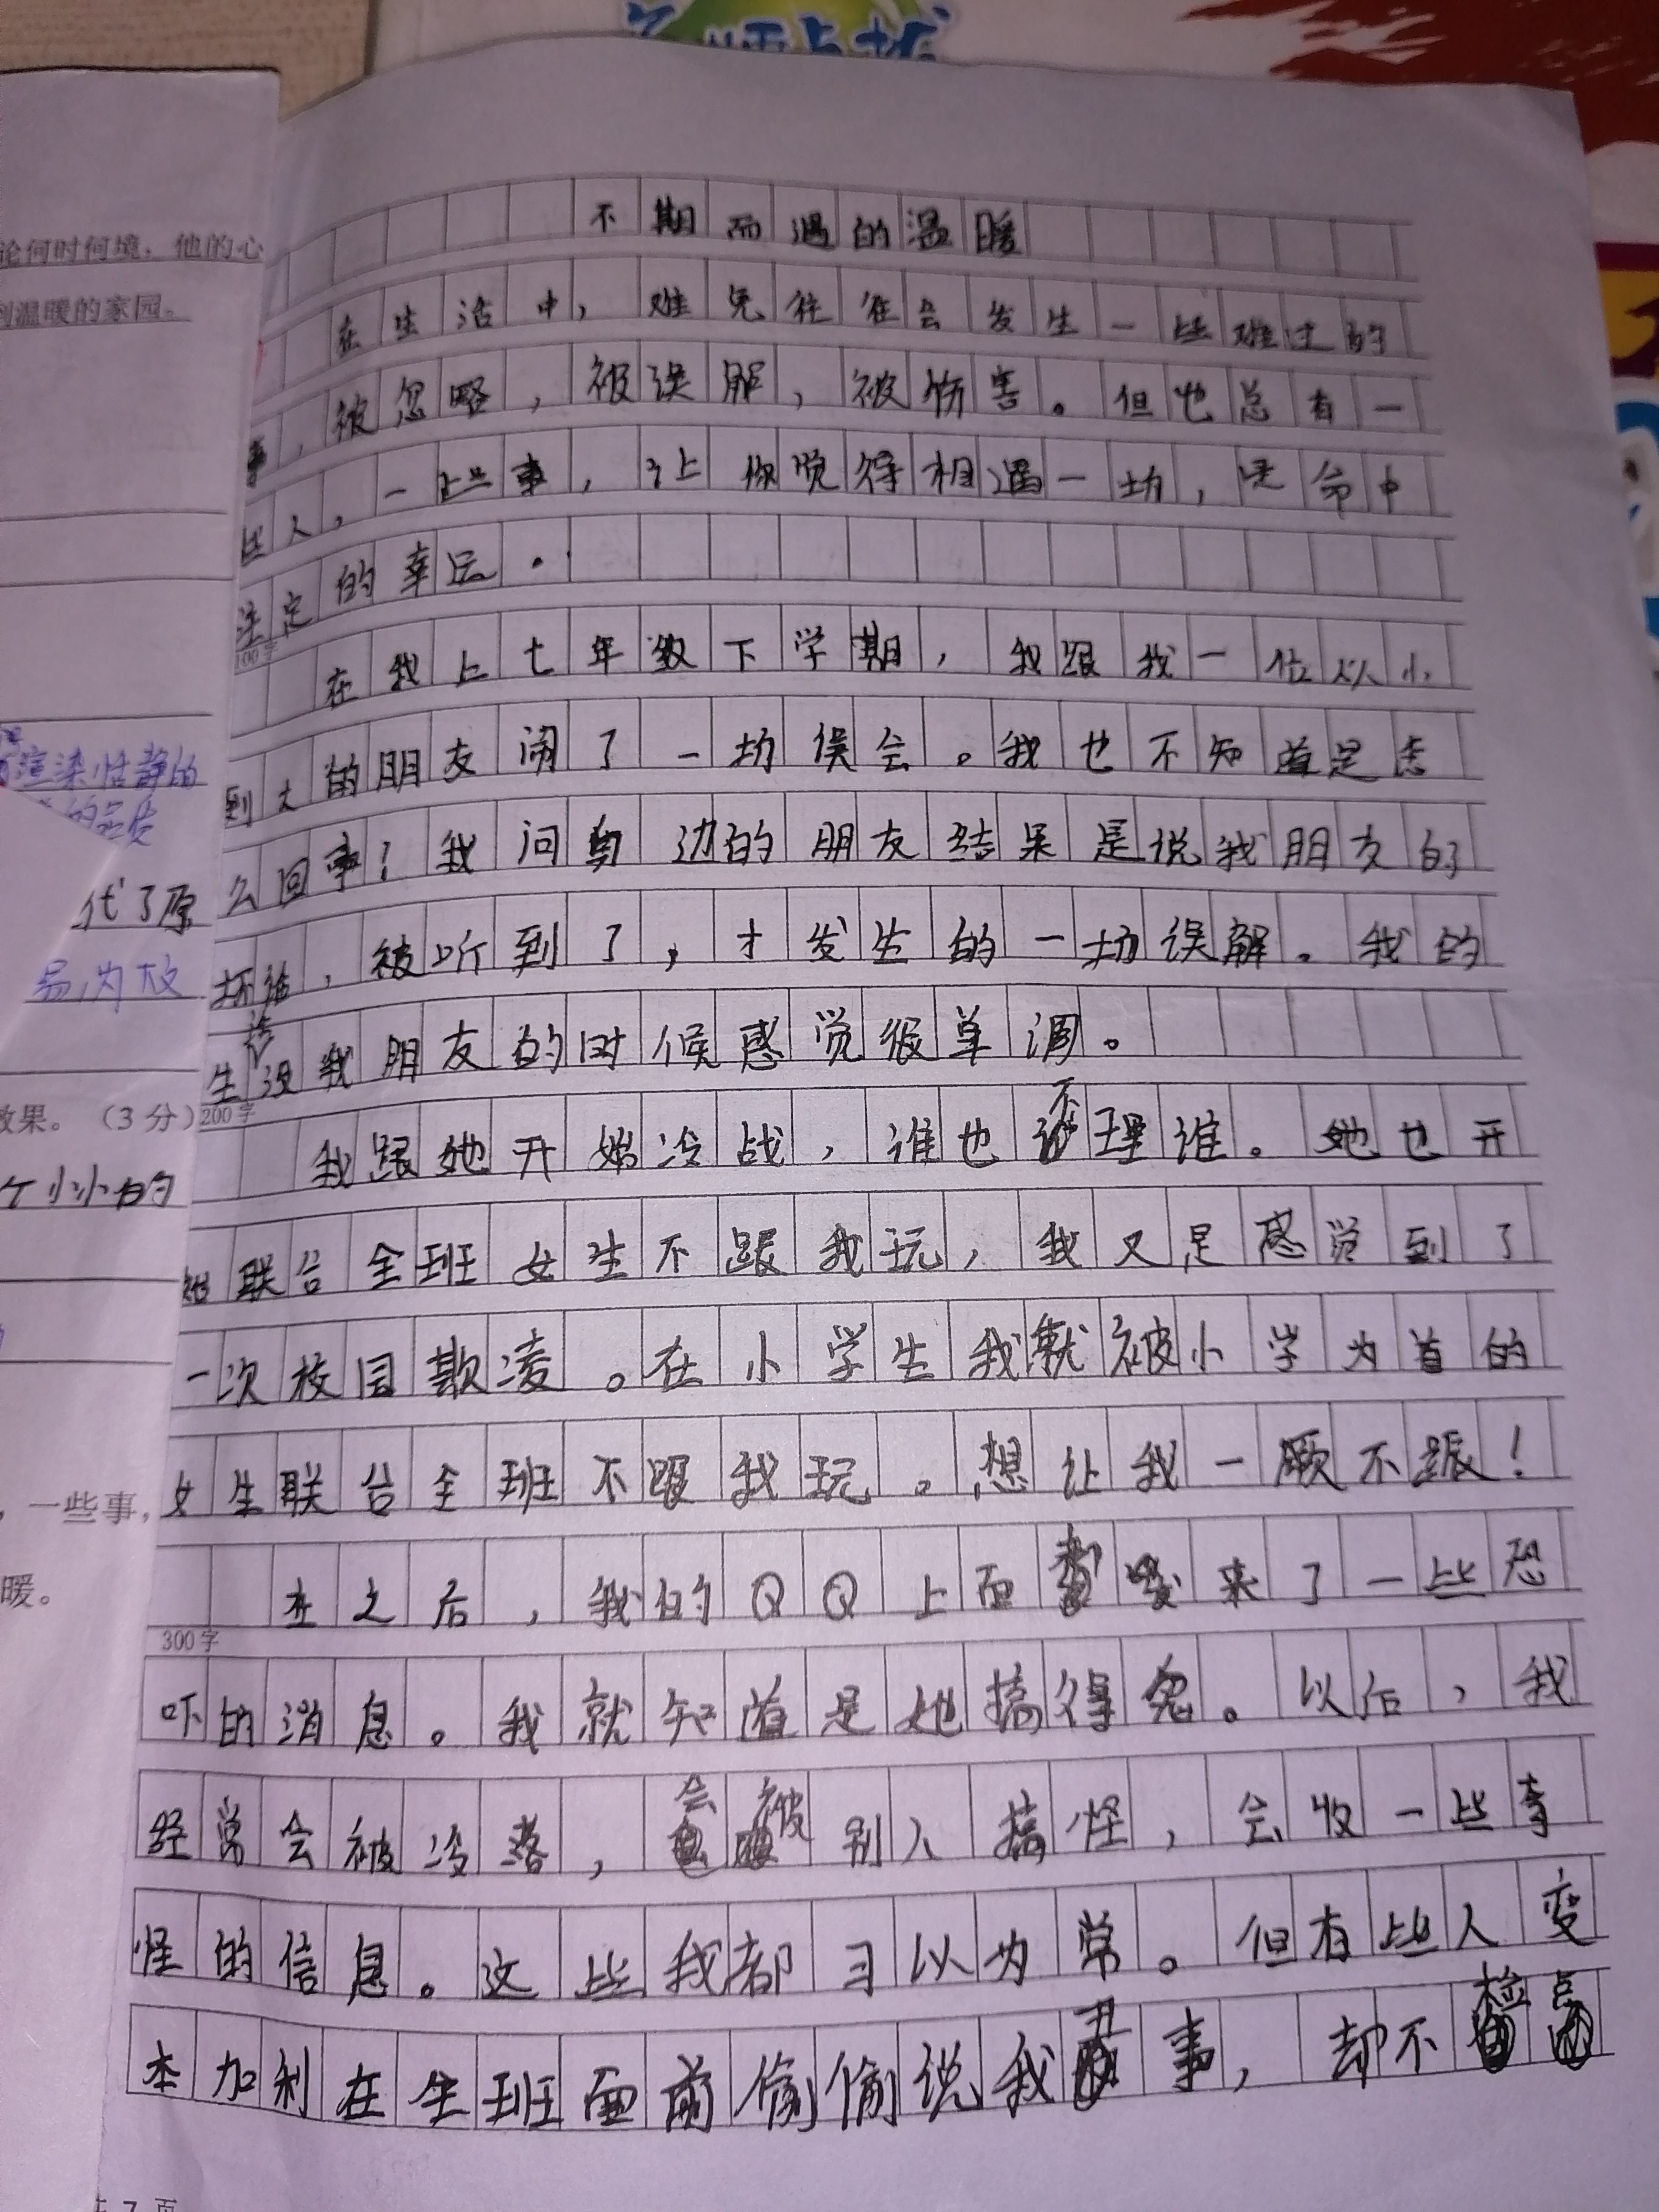 论何时何境，他的心
到温暖的家园。
渲染恬静的
代了原
易,为故
效果。（3分）
个小小的
，一些事，
暖。
不期而遇的温暖
在生活中，难免往往会发生一些难过的
事，被忽略，被误解，被伤害。但也总有一
些人，一些事，让你觉得相遇一场，是命中
注定的幸运．
100字
在我上七年级下学期，我跟我一位从小
到大的朋友闹了一场误会。我也不知道是怎
么回事！我问身边的朋友结果是说我朋友的
坏话，被听到了，才发生的一场误解。我的
生活没我朋友的时候感觉很单调。
200字
我跟她开始冷战，谁也不理谁。她也开
始联合全班女生不跟我玩，我又是感觉到了
一次校园欺凌。在小学生我就被小学为首的
女生联合全班不跟我玩。想让我一厥不踬！
在之后，我的QQ上面来了一些恐
300字
吓的消息。我就知道是她搞得鬼。以后，我
经常会被冷落，会被别人搞怪，会收一些事
怪的信息。这些我都习以为常。但有些人变
本加利在全班面前偷偷说我事，却不检点
共7页